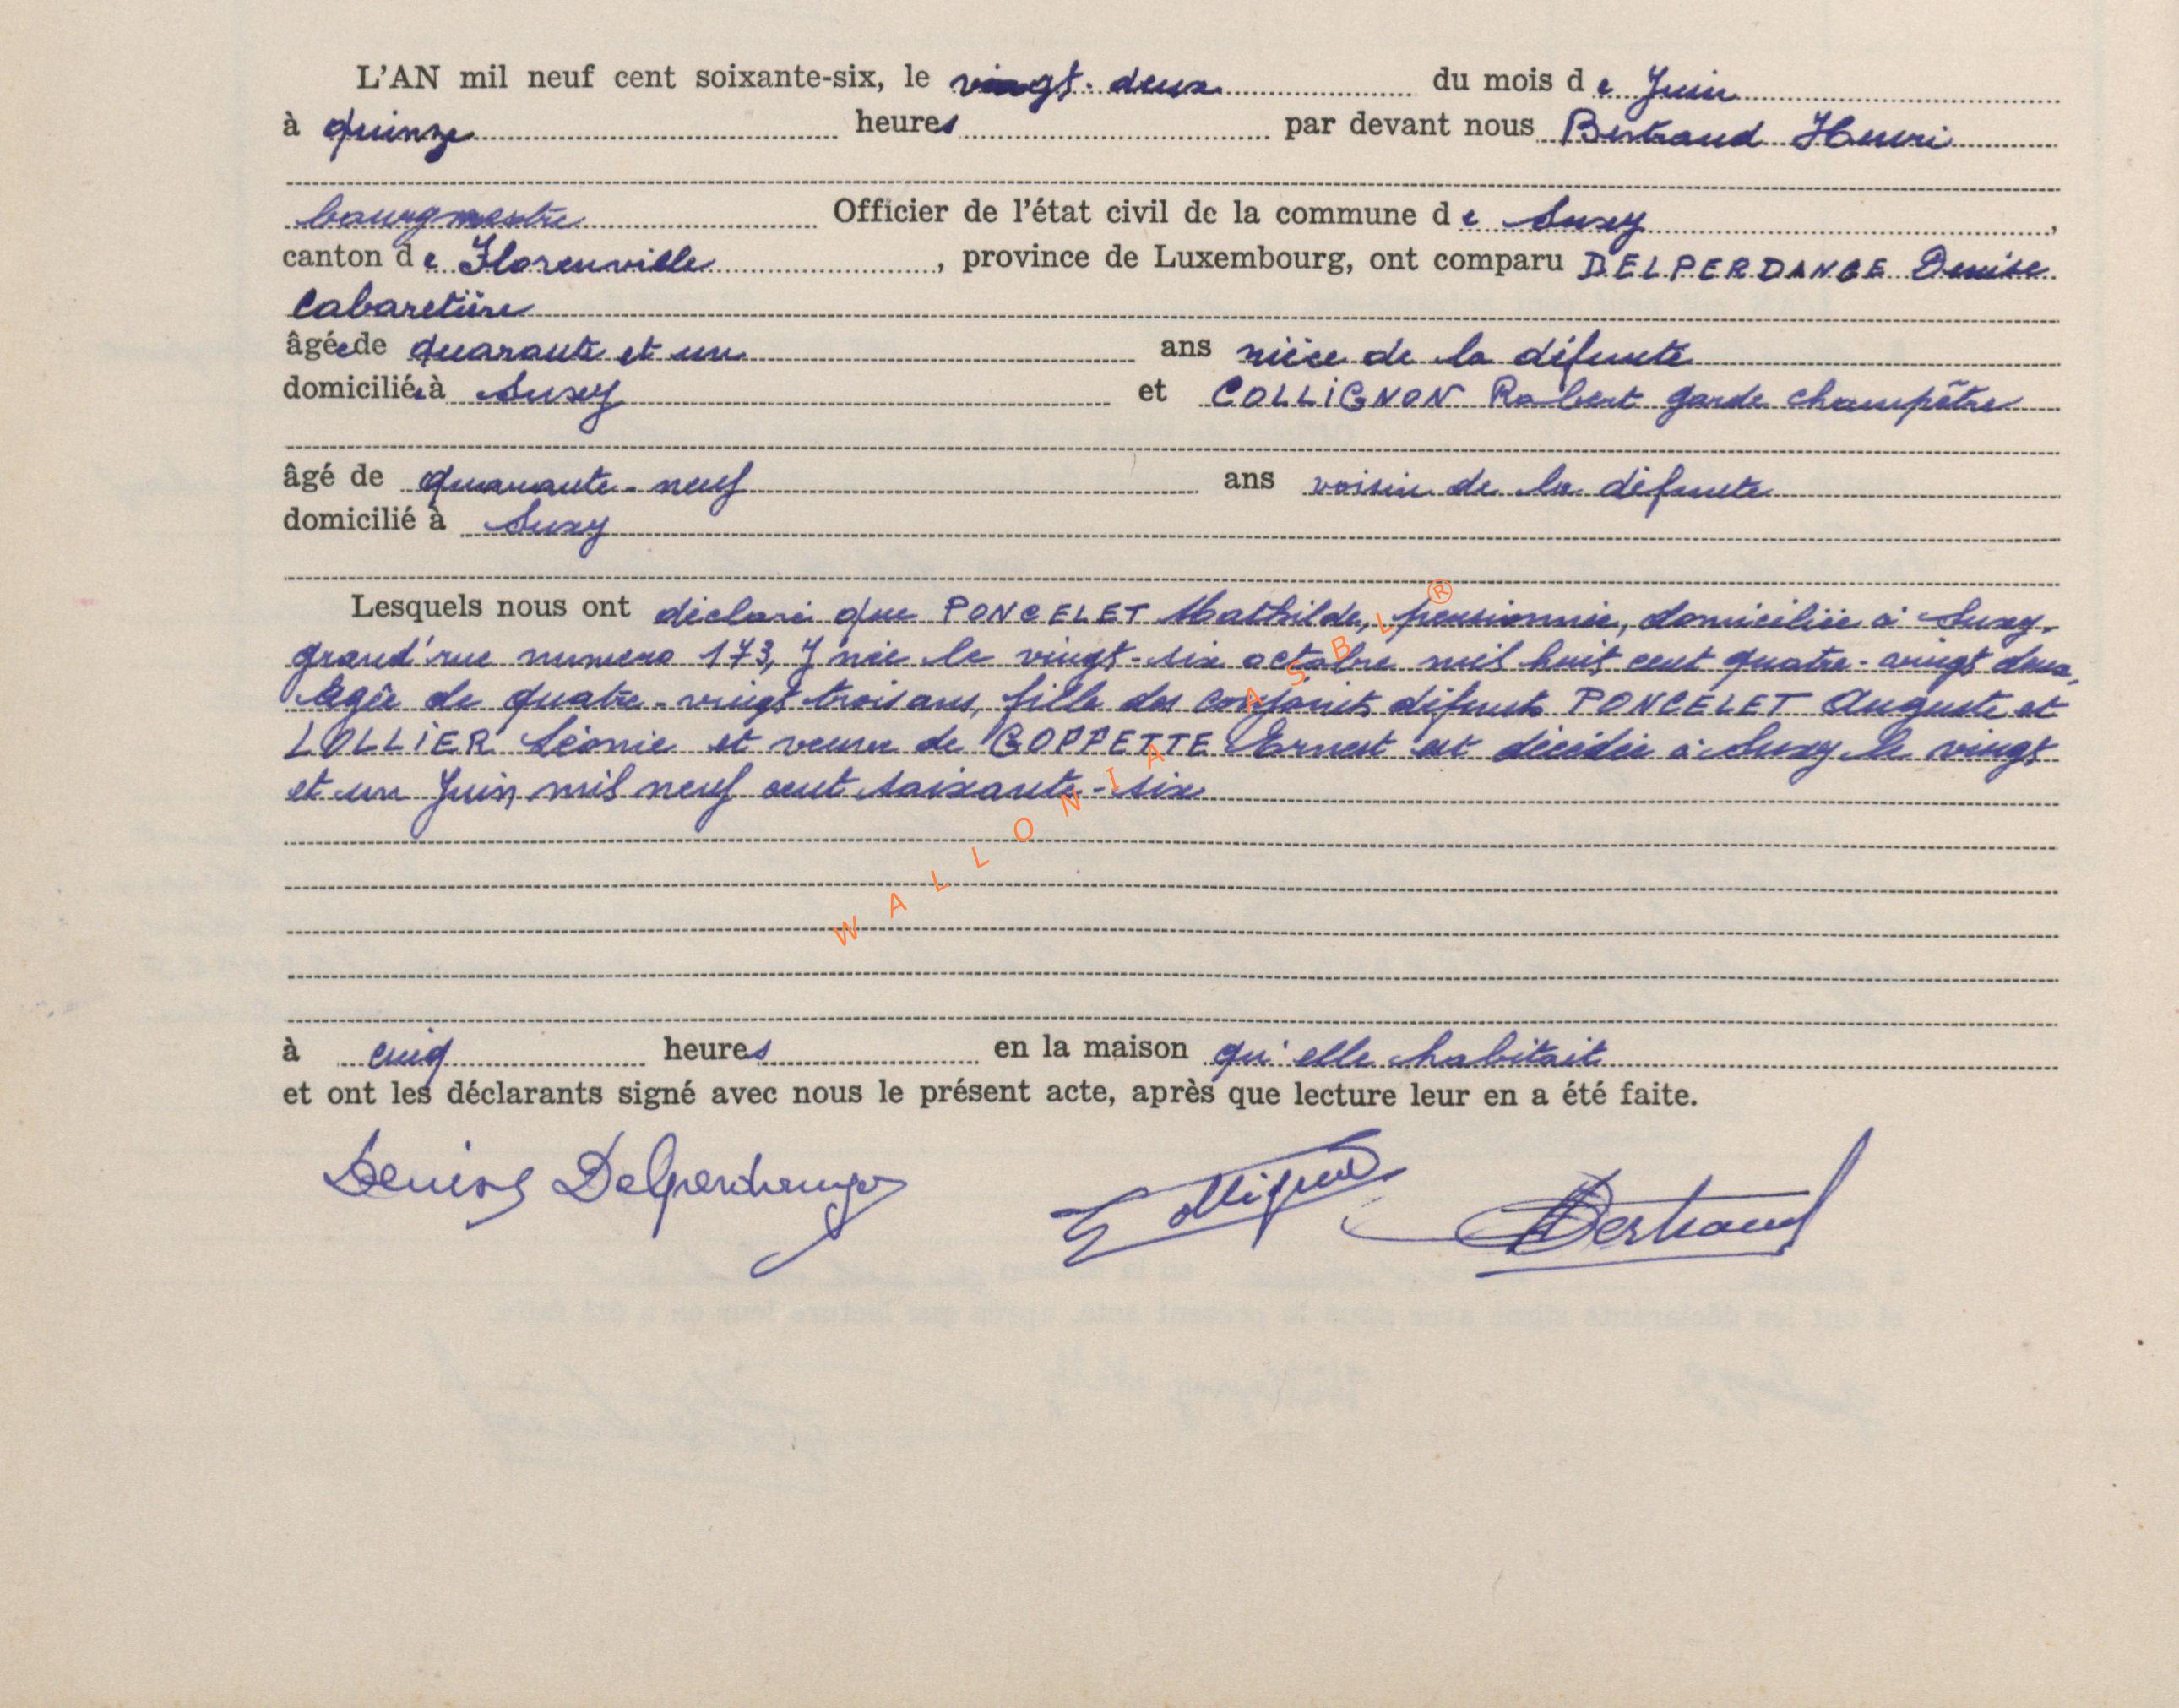 L'AN mil neuf cent soixante-six, le vingt-deux du mois de Juin
à quinze heures par devant nous Bertrand Henri
bourgmestre Officier de l'état civil de la commune de Suxy,
canton de Florenville, province de Luxembourg, ont comparu DELPERDANGE Denise
Cabaretière
âgée de quarante et un ans nièce de la défunte
domiciliée à Suxy et COLLIGNON Robert garde champêtre
âgé de quarante-neuf ans voisin de la défunte
domicilié à Suxy
Lesquels nous ont déclaré que PONCELET Mathilde, pensionnée, domiciliée à Suxy,
grand'rue numero 173, y née le vingt-six octobre mil huit cent quatre-vingt deux,
âgée de quatre-vingt trois ans, fille des conjoints défunts PONCELET Auguste et
LOLLIER Léonie et veuve de GOPPETTE Ernest est décédée à Suxy le vingt
et un Juin mil neuf cent soixante-six
à cinq heures en la maison qu'elle habitait
et ont les déclarants signé avec nous le présent acte, après que lecture leur en a été faite.
Denise Delperdange Collignon Bertrand
WALLONIA ASBL ®